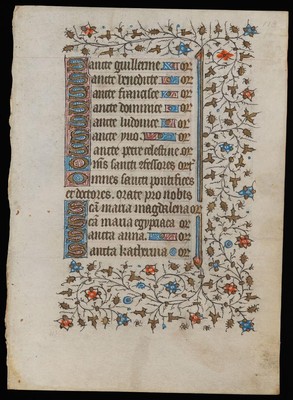 Sancte guillerme. or
Sancte benedicte or
Sancte francisce or
Sancte dominice or
Sancte ludovice or
Sancte yvo. or
Sancte petre celestine. or
Omnes sancti confessores. orate
Omnes sancti pontifices
et doctores. orate pro nobis
Sca maria magdalena or
Sca maria egypciaca or
Sancta anna. or
Sancta katherina or